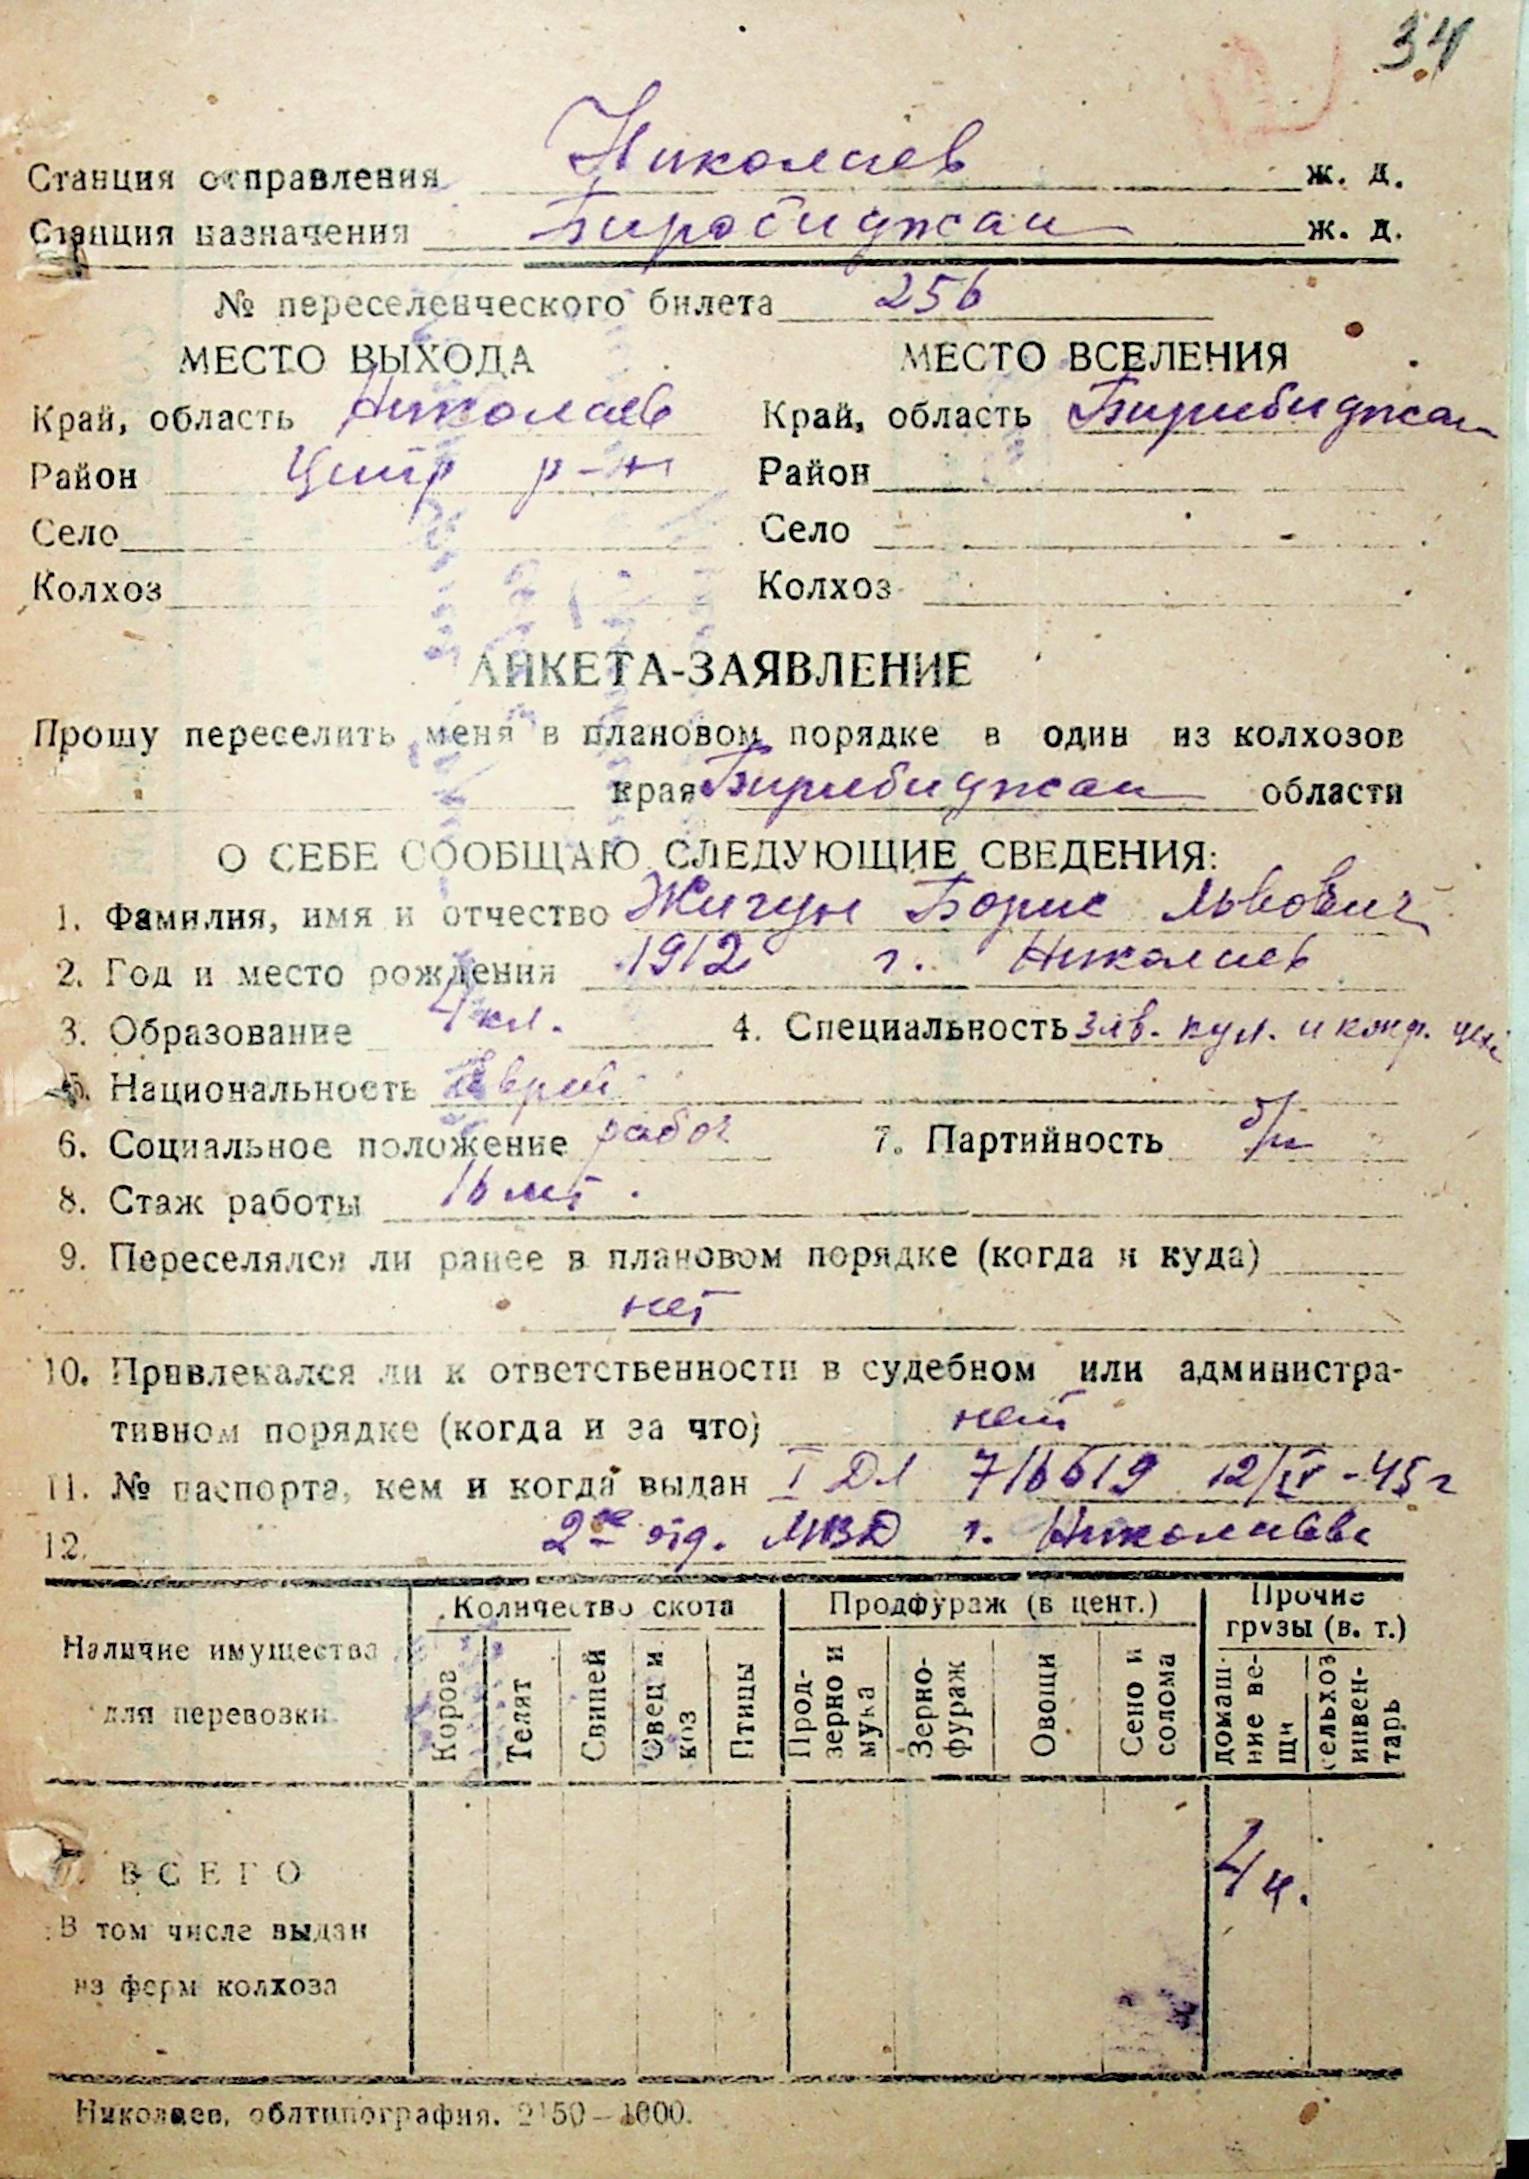 34
Станция отправления Николаев ж. д.
Станция назначения Биробиджан ж. д.
№ переселенческого билета 256
МЕСТО ВЫХОДА МЕСТО ВСЕЛЕНИЯ
Край, область Николаев Край, область Биробиджан
Район Центр р-н Район
Село Село
Колхоз Колхоз
АНКЕТА-ЗАЯВЛЕНИЕ
Прошу переселить меня в плановом порядке в один из колхозов
края Биробиджан области
О СЕБЕ СООБЩАЮ СЛЕДУЮЩИЕ СВЕДЕНИЯ:
1. Фамилия, имя и отчество Жигун Борис Львович
2. Год и место рождения 1912 г. Николаев
3. Образование 4 кл. 4. Специальность зав. и цех
5. Национальность Еврей
6. Социальное положение рабоч 7. Партийность б/п
8. Стаж работы 16 лет.
9. Переселялся ли ранее в плановом порядке (когда и куда)
нет
10. Привлекался ли к ответственности в судебном или администра-
тивном порядке (когда и за что) нет
11. № паспорта, кем и когда выдан I ДЛ 716619 12/IV-45 г
12. 2ое отд. МВД г. Николаева
Наличие имущества для перевозки
Количество скота Продфураж (в цент.) Прочие грузы (в. т.)
Коров Телят Свиней Овец и коз Птицы Прод-зерно и мука Зерно-фураж Овощи Сено и солома домаш-ние ве-щи сельхоз инвен-тарь
ВСЕГО 4 ц.
В том числе выдан
из ферм колхоза
Николаев, облтипография. 2150—1000.